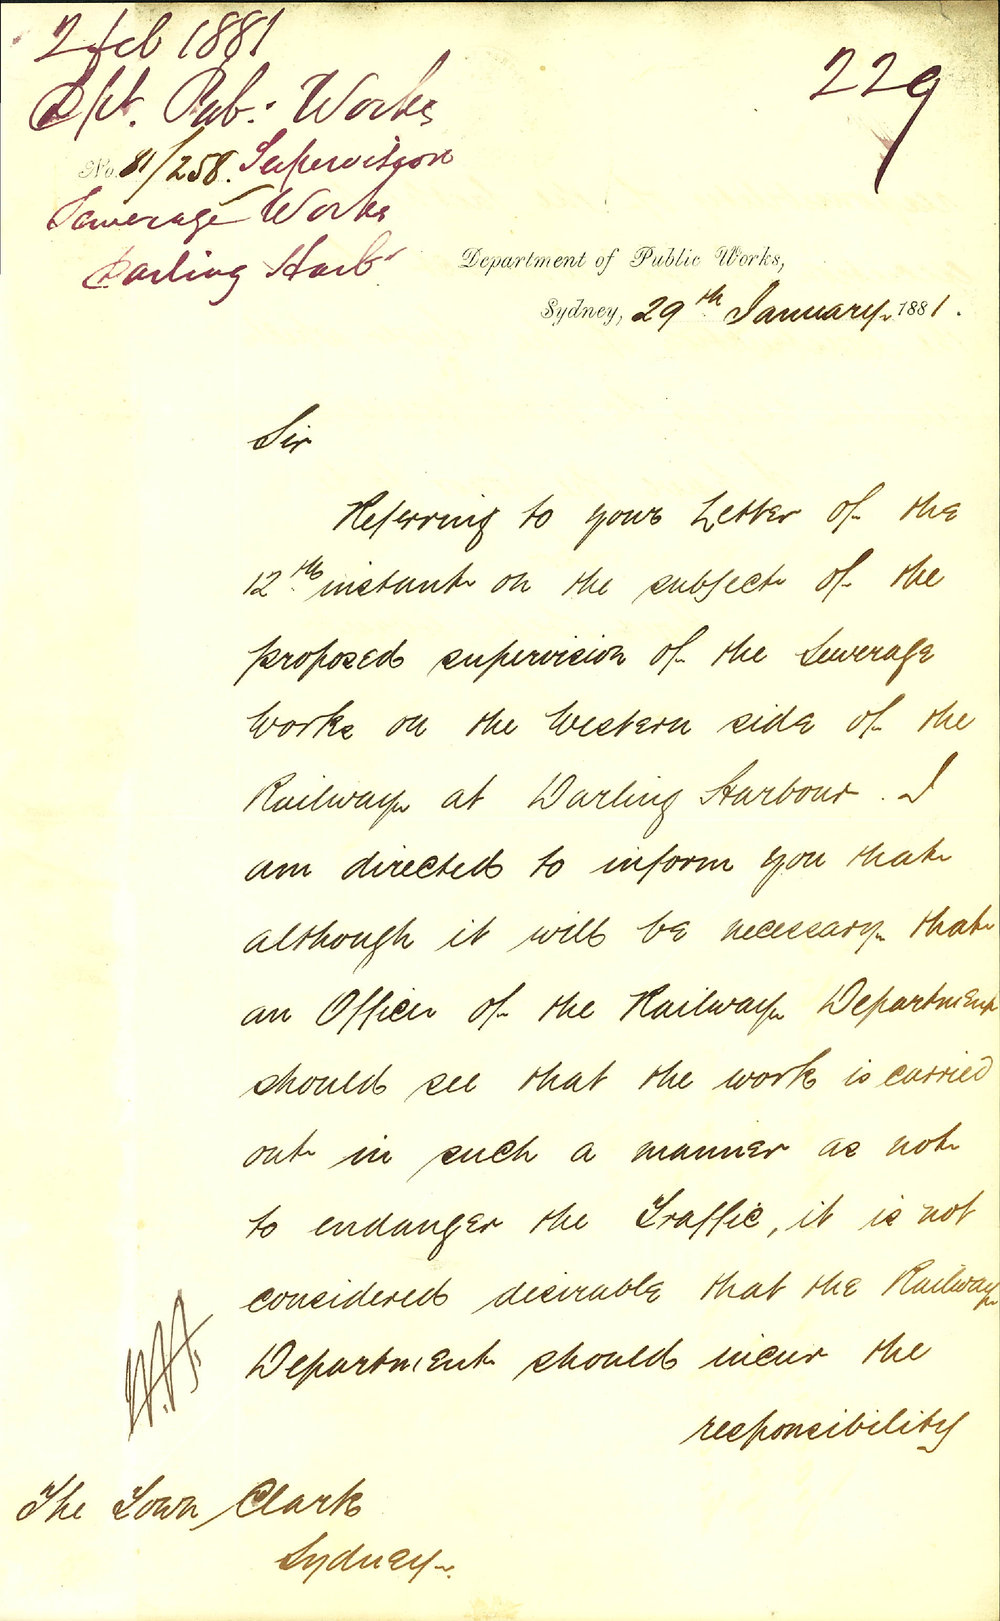 2 Feb 1881
Dpt. Pub: Works
No. 81/258. Supervision
Sewerage Works
Darling Harb.
229
Department of Public Works,
Sydney, 29th January 1881.
Sir
Referring to your Letter of the
12th instant on the subject of the
proposed supervision of the Sewerage
Works on the Western side of the
Railway at Darling Harbour. I
am directed to inform you that
although it will be necessary that
an Officer of the Railway Department
should see that the work is carried
out in such a manner as not
to endanger the Traffic, it is not
considered desirable that the Railway
Department should incur the
responsibility
The Town Clerk
Sydney.